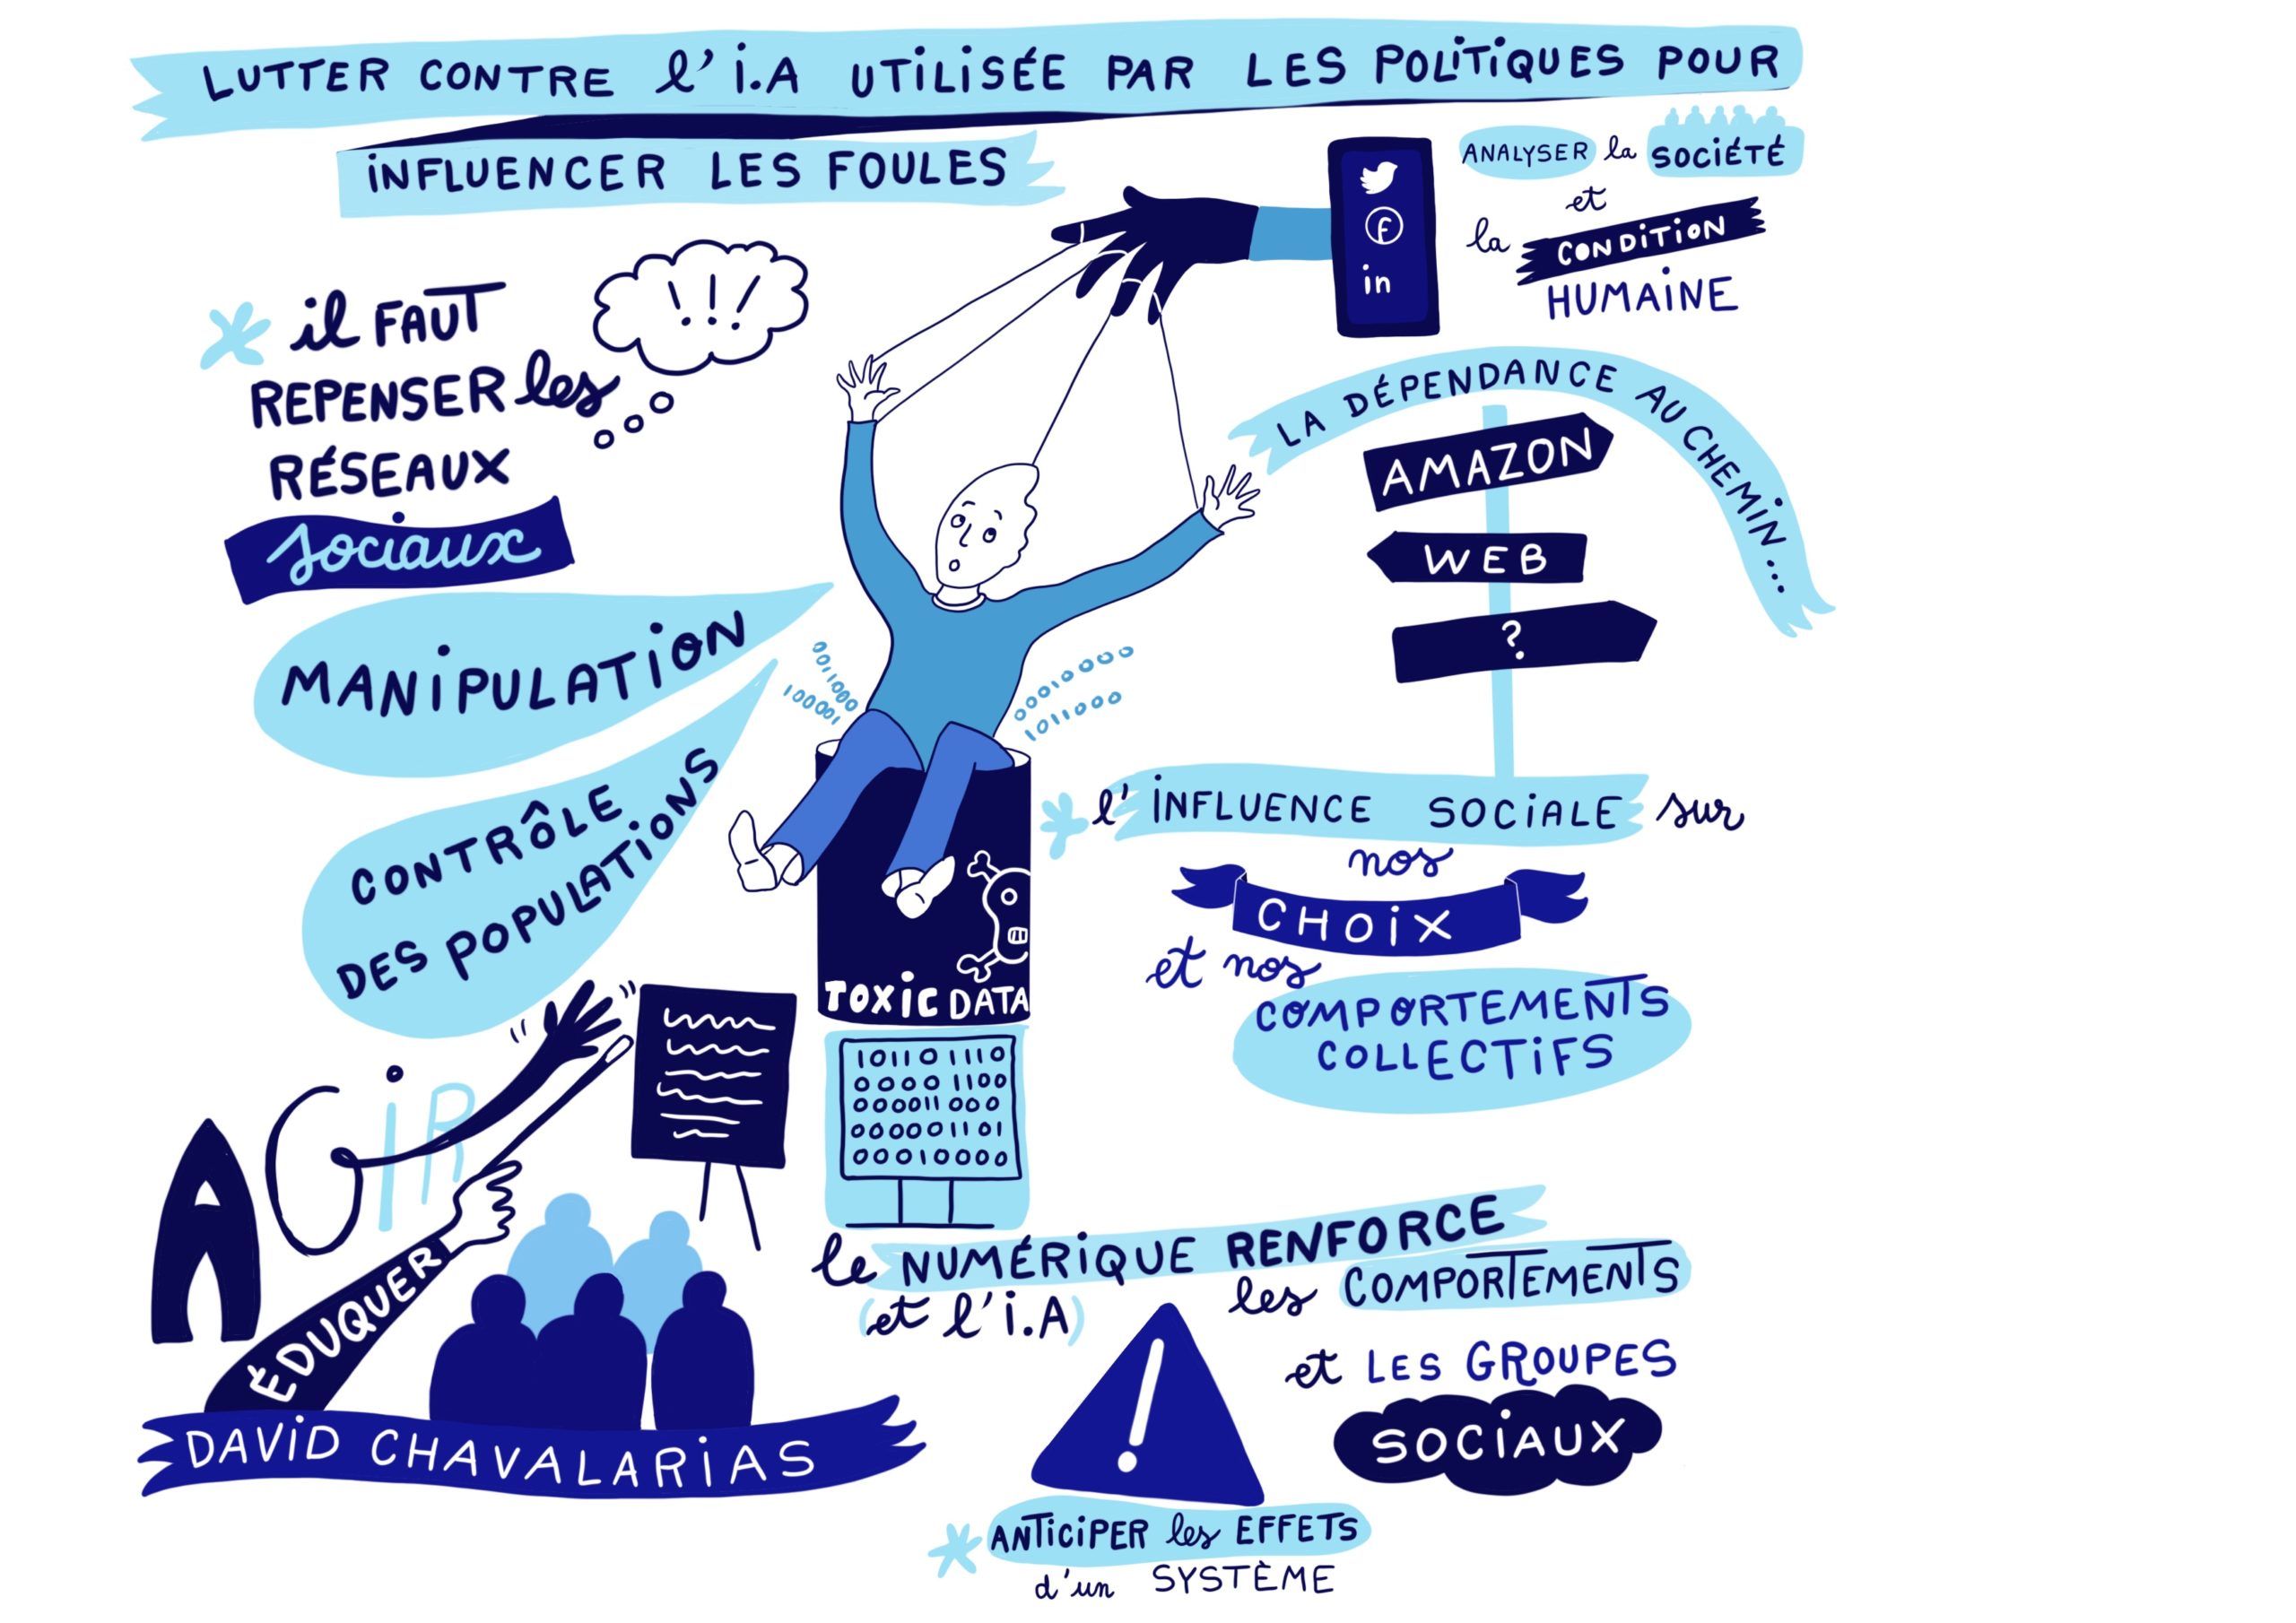 LUTTER CONTRE l'i.A UTiLiSÉE PAR LES POLiTiQUES POUR
iNFLUENCER LES FOULES
ANALYSER la SOCiÉTÉ
et
la CONDiTiON
HUMAiNE
f
in
!!!
il FAUT
REPENSER les
RÉSEAUX
sociaux
LA DÉPENDANCE AU CHEMiN...
AMAZON
WEB
?
MANiPULATiON
CONTRÔLE
DES POPULATiONS
0011000
100001
00010000
1011000
TOXiC DATA
l'iNFLUENCE SOCiALE sur
nos
CHOiX
et nos
COMPORTEMENTS
COLLECTiFS
10110 1110
0000 1100
000011 000
000001101
00010000
AGiR
ÉDUQUER
DAViD CHAVALARiAS
le NUMÉRiQUE RENFORCE
(et l'i.A)
les COMPORTEMENTS
et LES GROUPES
SOCiAUX
!
ANTiCiPER les EFFETS
d'un SYSTÈME